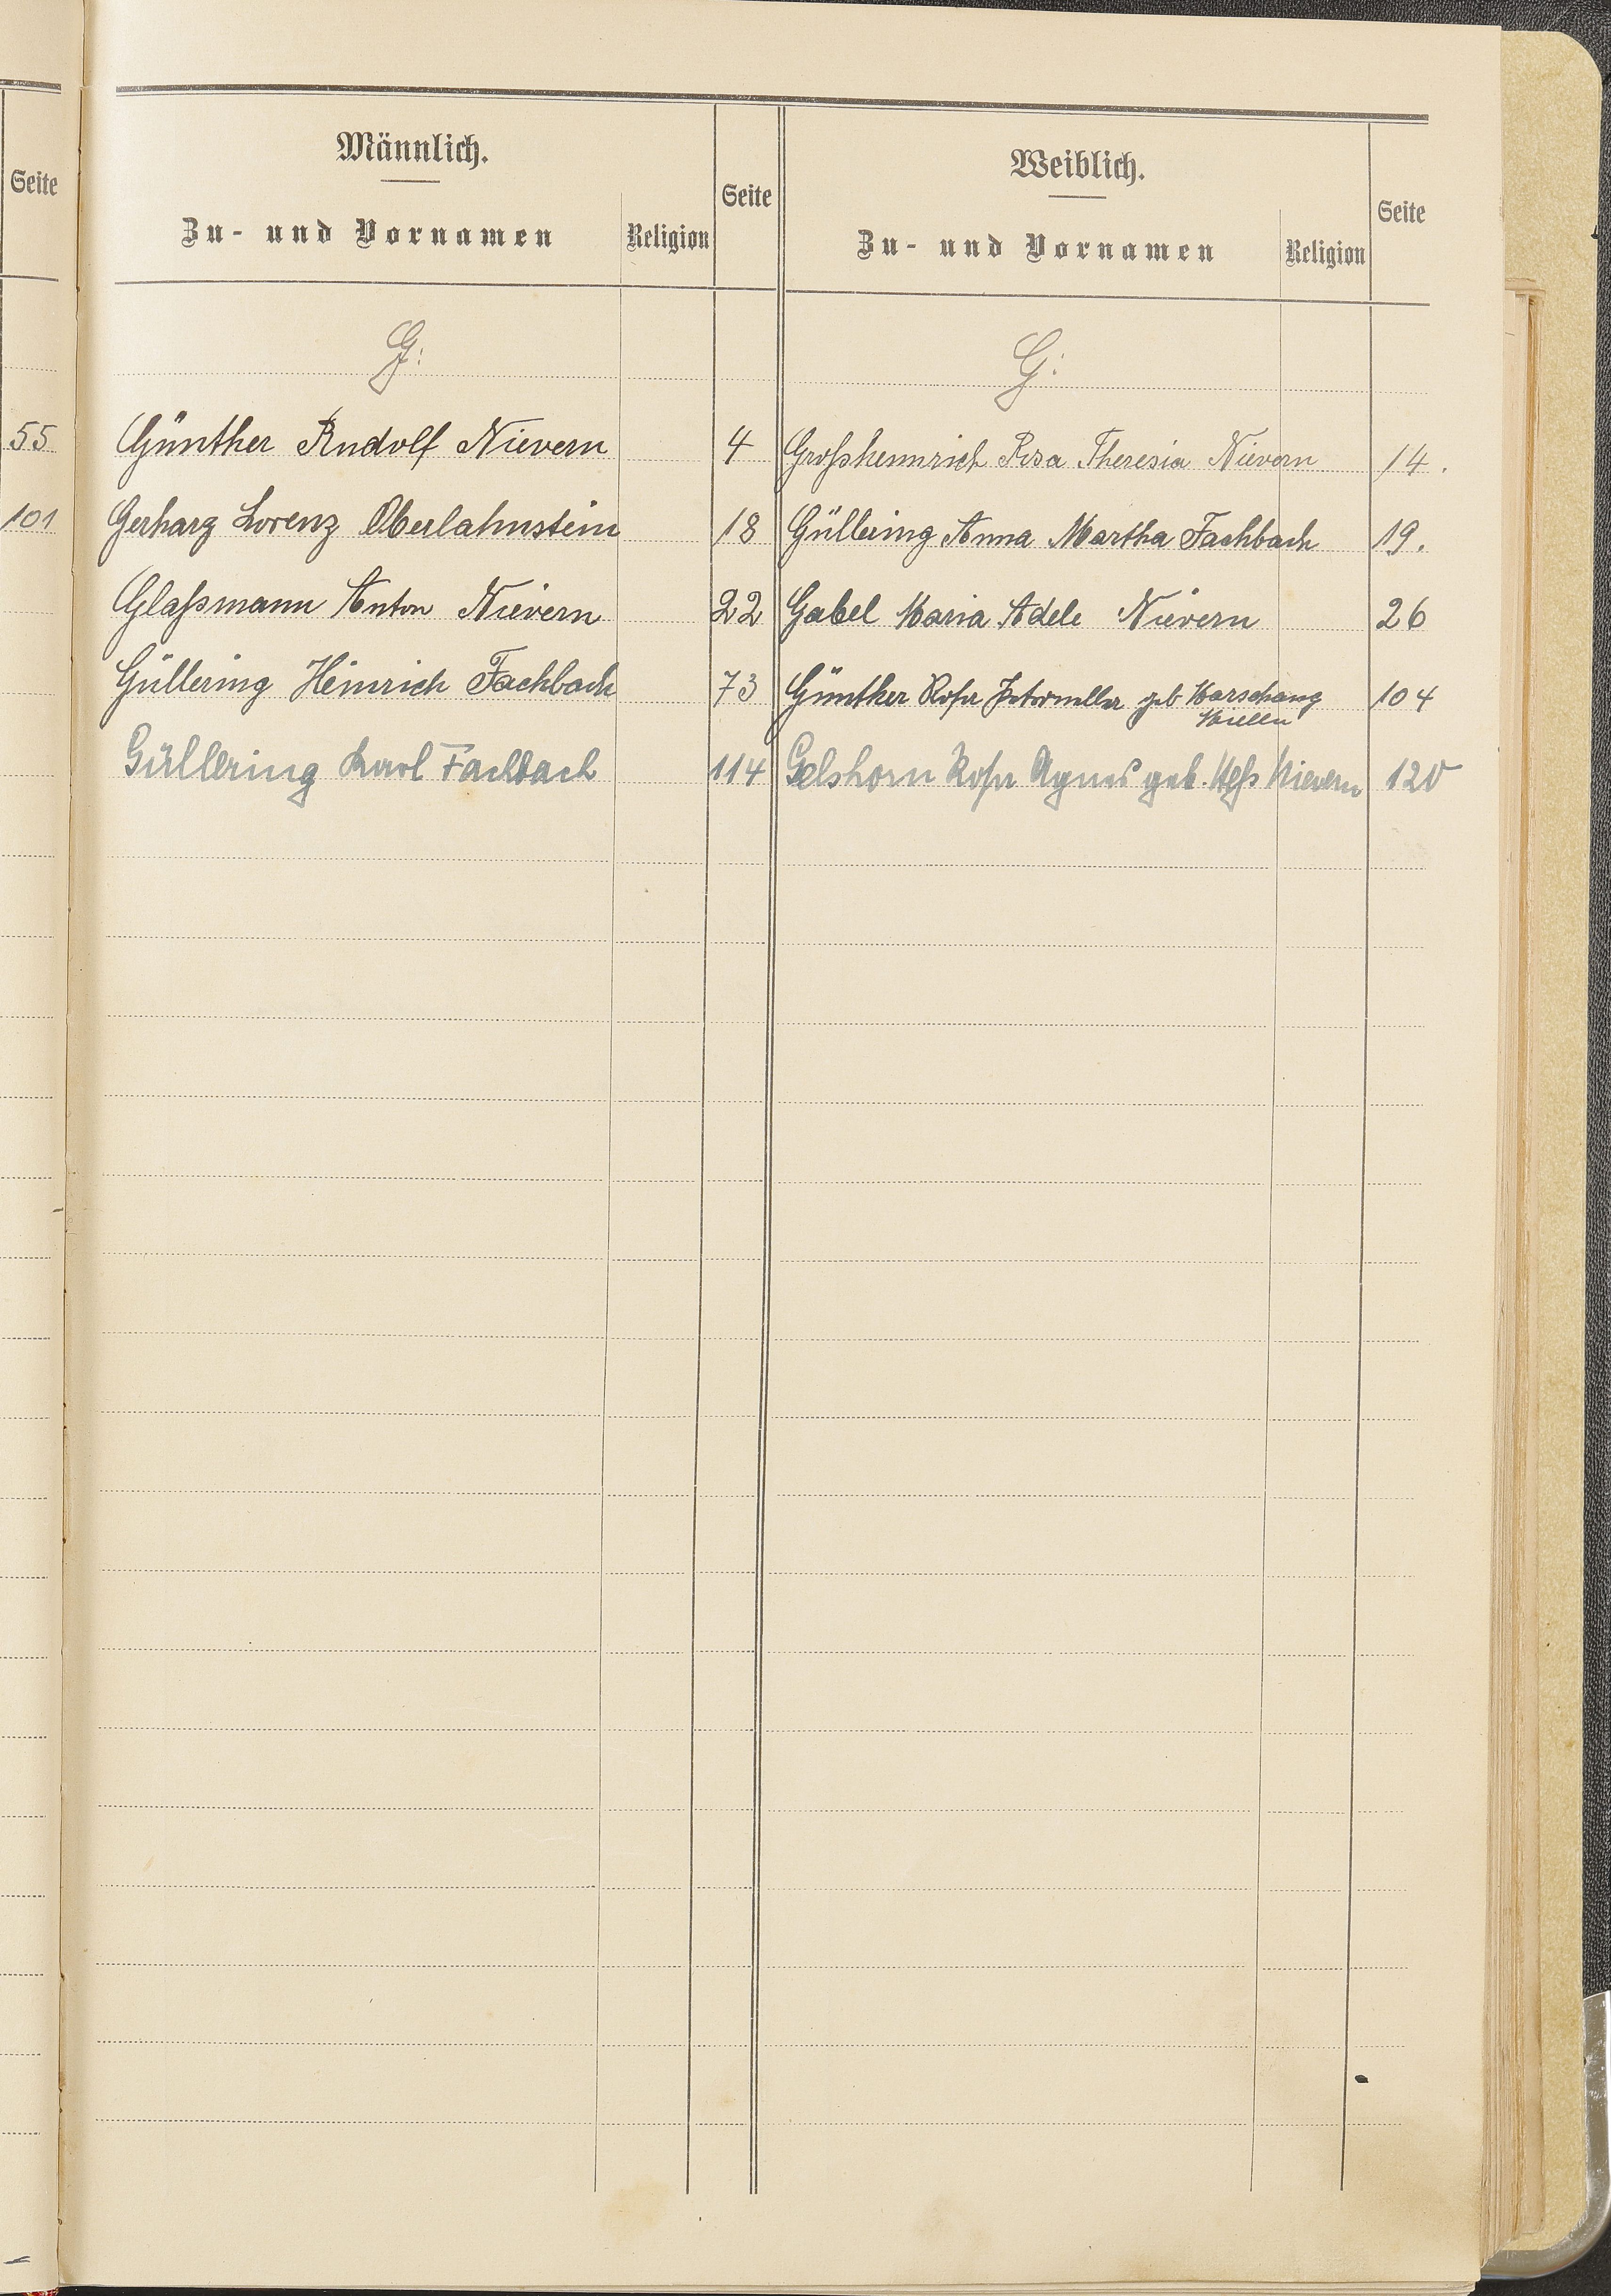 Seite
55
101
Männlich.
Zu- und Vornamen
Religion
Seite
G:
Günther Rudolf Nievern 4
Gerharz Lorenz Oberlahnstein 18
Glaßmann Anton Nievern 22
Güllering Heinrich Fachbach 73
Güllering Karl Fachbach 114
Weiblich.
Zu- und Vornamen
Religion
Seite
G:
Großhennrich Rosa Theresia Nievern 14.
Güllering Anna Martha Fachbach 19.
Gabel Maria Adele Nievern 26
Günther Rosa geb Marschang 104
Miellen
Gelshorn Rosa Agnes geb. Heß Nievern 120